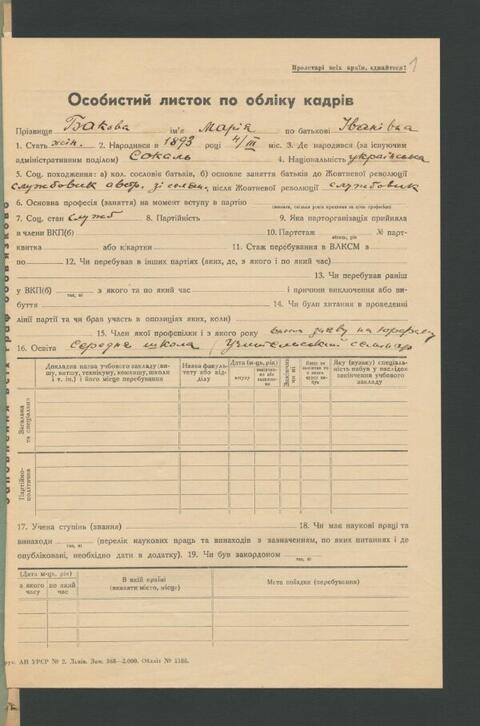 Пролетарі всіх країн, єднайтеся! 1
Особистий листок по обліку кадрів
Прізвище Бакова ім'я Марія по батькові Іванівна
1. Стать жін. 2. Народився в 1893 році 4/III міс. 3. Де народився (за існуючим
адміністративним поділом) Сокаль 4. Національність українська
5. Соц. походження: а) кол. сословіє батьків, б) основне заняття батьків до Жовтневої революції
службовик після Жовтневої революції службовик
6. Основна професія (заняття) на момент вступу в партію
7. Соц. стан служб 8. Партійність 9. Яка парторганізація прийняла
в члени ВКП(б) 10. Партстаж № парт-
квитка або к/картки 11. Стаж перебування в ВЛКСМ з
по 12. Чи перебував в інших партіях (яких, де, з якого і по який час)
13. Чи перебував раніш
у ВКП(б) з якого та по який час і причини виключення або ви-
буття 14. Чи були хитання в проведенні
лінії партії та чи брав участь в опозиціях яких, коли)
15. Член якої профспілки і з якого року
16. Освіта Середня школа (Учительський семінар
Докладна назва учбового закладу (ви-
шу, втшу, технікуму, комвишу, школи
і т. ін.) і його місце перебування
Назва факуль-
тету або від-
ділу
Дата (м-ць, рік)
вступу
Яку (вузьку) спеціаль-
ність набув у наслідок
закінчення учбового
закладу
Загальна
та спеціальна
Партійно-
політична
17. Учена ступінь (звання) 18. Чи має наукові праці та
винаходи (перелік наукових праць та винаходів з зазначенням, по яких питаннях і де
так, ні
опубліковані, необхідно дати в додатку). 19. Чи був закордоном
так, ні
(Дата) м-ць, рік)
з якого
часу
по який
час
В якій країні
(вказати місто, місце)
Мета поїздки (перебування)
друк. АН УРСР № 2. Львів. Зам. 368—2.000. Обліт № 1186.